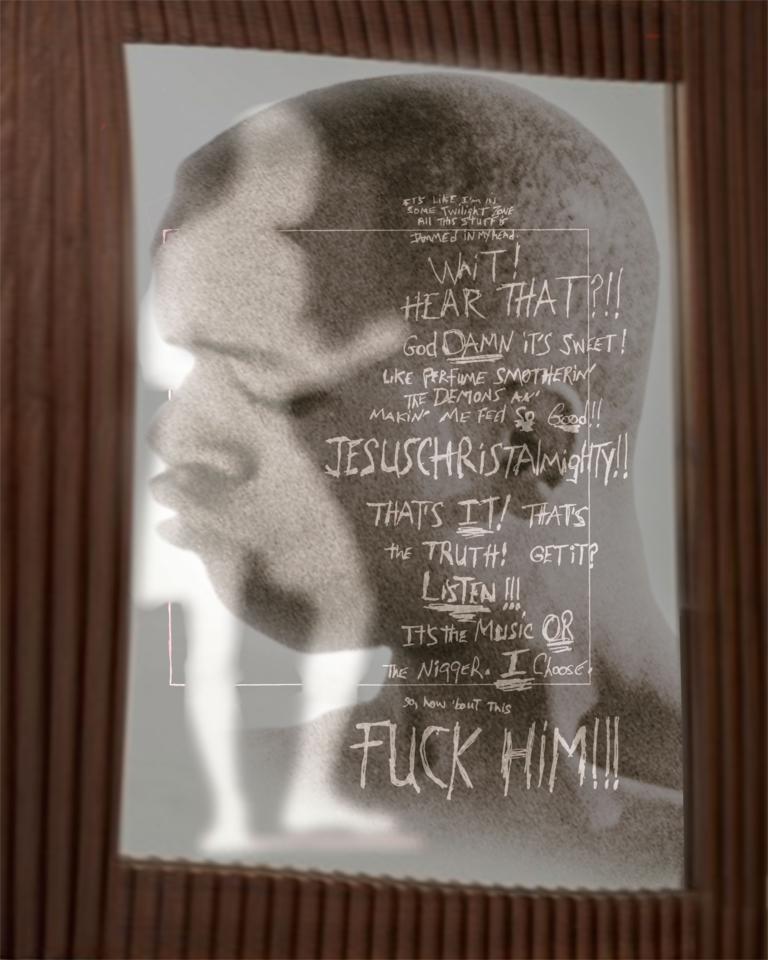 ITS LIKE I'm IN
SOME Twilight ZONE
All THIS STUFF'S
JAMMED IN MY HEAD.
WAIT!
HEAR THAT?!!
God DAMN IT'S SWEET!
LIKE PERFUME SMOTHERIN'
THE DEMONS AN'
MAKIN' ME FEEL SO Good!!
JESUSCHRISTAlmigHTY!!
THAT'S IT! THAT'S
the TRUTH! GET iT?
LISTEN!!!
IT'S the MUSIC OR
THE NiGGER. I CHOOSE.
so, how 'bout This
FUCK HiM!!!